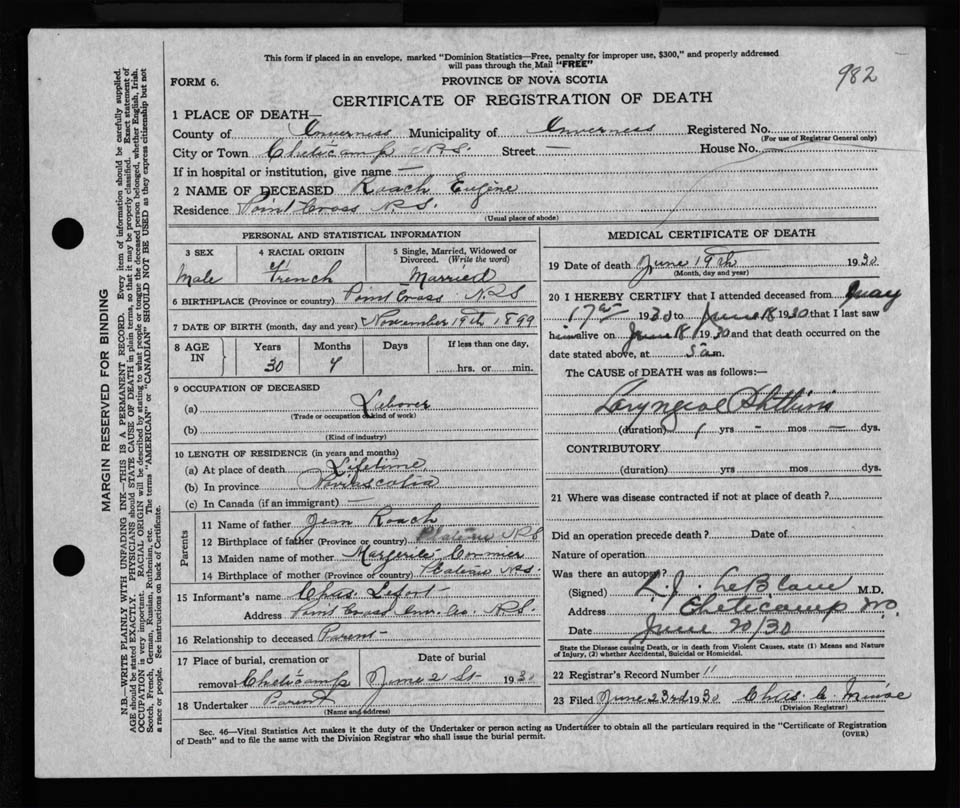 This form if placed in an envelope, marked "Dominion Statistics—Free, penalty for improper use, $300," and properly addressed
will pass through the Mail "FREE"
982
FORM 6.
PROVINCE OF NOVA SCOTIA
CERTIFICATE OF REGISTRATION OF DEATH
1 PLACE OF DEATH—
County of Inverness Municipality of Inverness Registered No.
(For use of Registrar General only)
City or Town Cheticamp N.S. Street — House No.
If in hospital or institution, give name —
2 NAME OF DECEASED Roach Eugene
Residence Point Cross N.S.
(Usual place of abode)
PERSONAL AND STATISTICAL INFORMATION
3 SEX
Male
4 RACIAL ORIGIN
French
5 Single, Married, Widowed or
Divorced. (Write the word)
Married
6 BIRTHPLACE (Province or country) Point Cross N.S
7 DATE OF BIRTH (month, day and year) November 19th 1899
8 AGE IN
Years Months Days If less than one day,
30 4 hrs. or min.
9 OCCUPATION OF DECEASED
(a) Laborer
(Trade or occupation or kind of work)
(b)
(Kind of industry)
10 LENGTH OF RESIDENCE (in years and months)
(a) At place of death Lifetime
(b) In province Novascotia
(c) In Canada (if an immigrant)
Parents
11 Name of father Jem Roach
12 Birthplace of father (Province or country) Plateau N.S
13 Maiden name of mother Margerite Cormier
14 Birthplace of mother (Province or country) Plateau N.S.
15 Informant's name Chas. Lefort
Address Point Cross Inv. Co. N.S.
16 Relationship to deceased Parent
17 Place of burial, cremation or
removal Cheticamp
Date of burial
June 21st 1930
18 Undertaker Parent
(Name and address)
MEDICAL CERTIFICATE OF DEATH
19 Date of death June 19th 1930
(Month, day and year)
20 I HEREBY CERTIFY that I attended deceased from May
17th 1930 to June 18 1930 that I last saw
him alive on June 18 1930 and that death occurred on the
date stated above, at 5 am.
The CAUSE of DEATH was as follows:—
Laryngeal Phthisis
(duration) 1 yrs - mos — dys.
CONTRIBUTORY
(duration) yrs mos dys.
21 Where was disease contracted if not at place of death?
Did an operation precede death? Date of
Nature of operation
Was there an autopsy?
(Signed) L. J. LeBlanc M.D.
Address Cheticamp
Date June 20/30
State the Disease causing Death, or in death from Violent Causes, state (1) Means and Nature
of Injury, (2) whether Accidental, Suicidal or Homicidal.
22 Registrar's Record Number 11
23 Filed June 23rd 1930 Chas. C.
(Division Registrar)
Sec. 46—Vital Statistics Act makes it the duty of the Undertaker or person acting as Undertaker to obtain all the particulars required in the "Certificate of Registration
of Death" and to file the same with the Division Registrar who shall issue the burial permit.
(OVER)
MARGIN RESERVED FOR BINDING
N.B.—WRITE PLAINLY WITH UNFADING INK—THIS IS A PERMANENT RECORD. Every item of information should be carefully supplied.
AGE should be stated EXACTLY. PHYSICIANS should STATE CAUSE OF DEATH in plain terms, so that it may be properly classified. Exact statement of
OCCUPATION is very important. RACIAL ORIGIN will be described by stating to what people or tongue the deceased person belonged, whether English, Irish,
Scotch, French, German, Russian, Ruthenian, etc. The terms "AMERICAN" or "CANADIAN" SHOULD NOT BE USED as they express citizenship but not
a race or people. See instructions on back of Certificate.